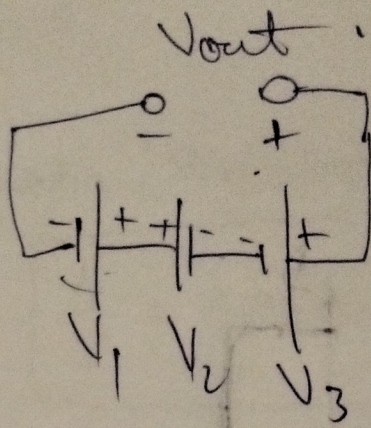 Vout
- +
- + + - - +
V1 V2 V3